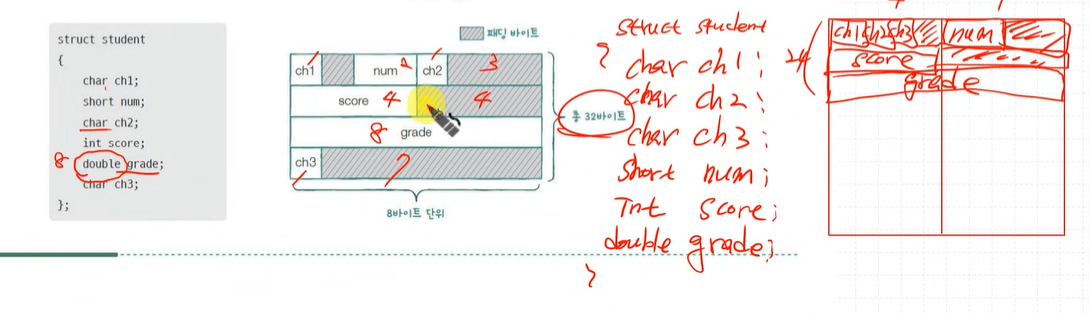 struct student
{
char ch1;
short num;
char ch2;
int score;
8 double grade;
char ch3;
};
패딩 바이트
1 2 1 3
ch1 num ch2
score 4 4
8 grade
ch3 7
총 32바이트
8바이트 단위
struct student
{
char ch1;
char ch2;
char ch3;
short num;
Int score;
double grade;
}
ch1 ch2 ch3 num
24 score
grade